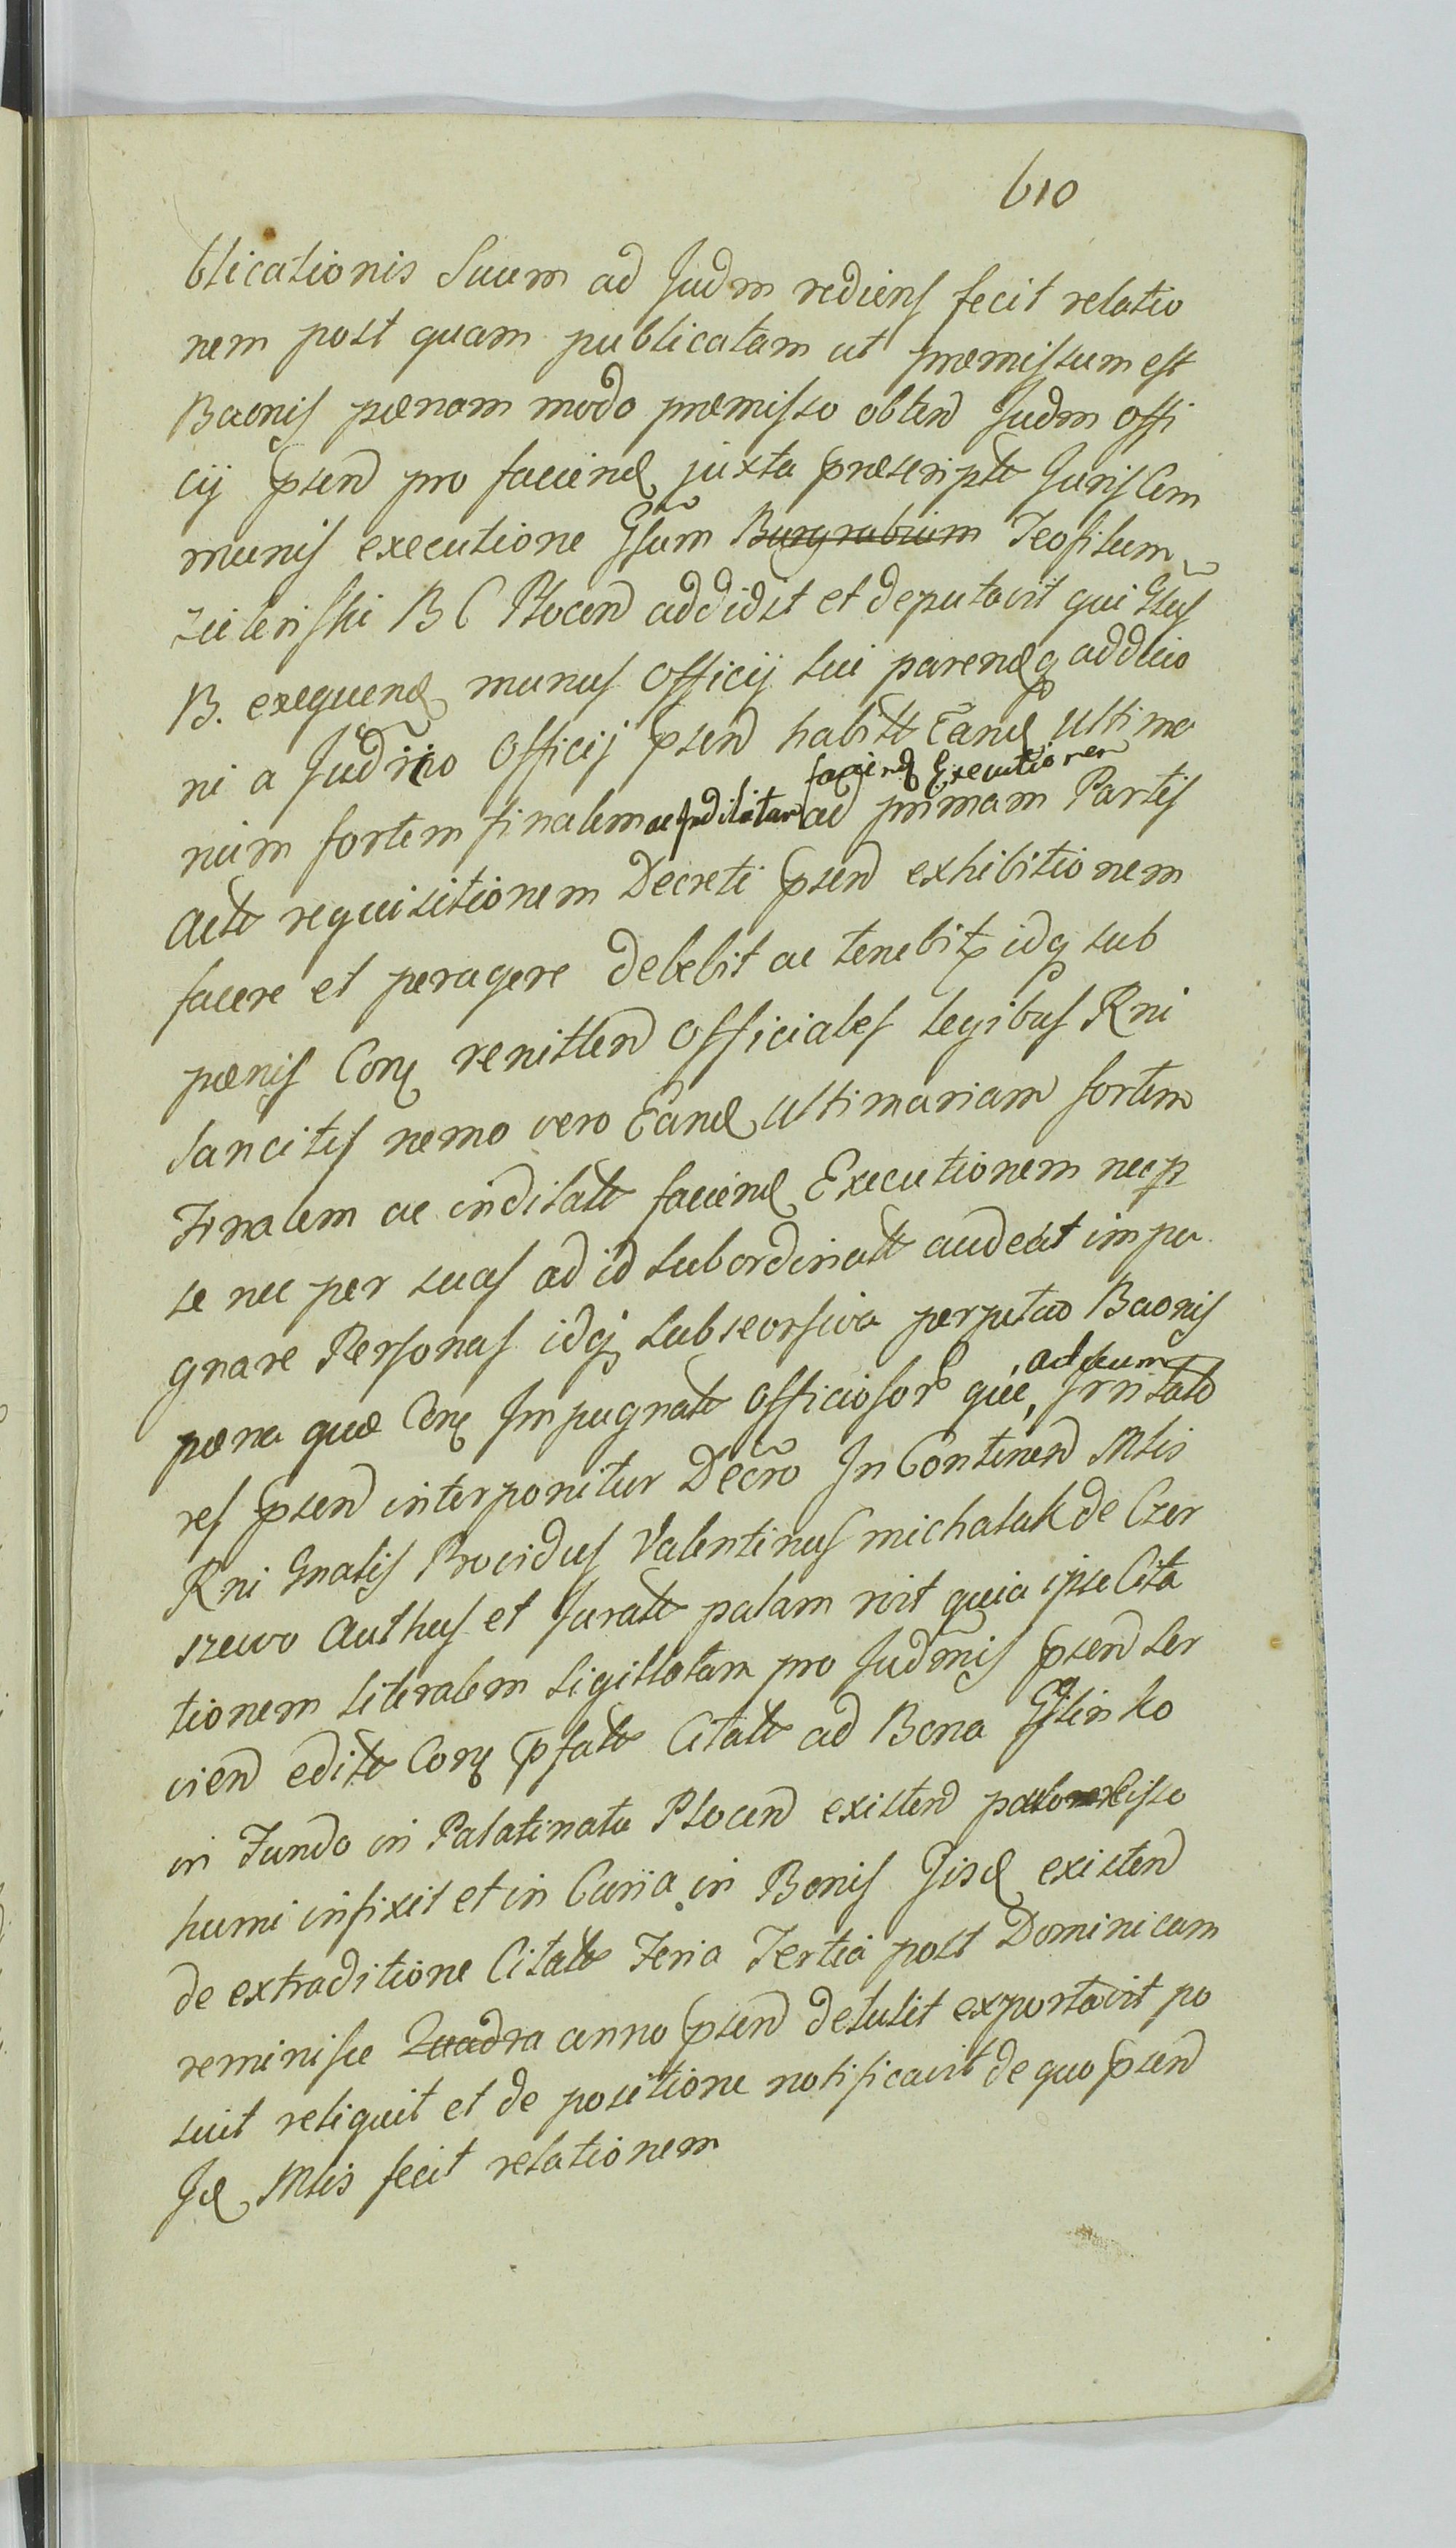 610
blicationis Suum ad Judm rediens fecit relatio
nem post quam publicatam ut præmissum est
Baonis pœnam modo præmisso obtend Judm offi
cij psend pro faciend juxta præscripte Juris Com
munis executione Gsum Burgrabium Teofilum
Zielenski B C Plocen addidit et deputavit qui Gsus
B. exequend munus officij sui parendq addicio
ni a Judrio officij psend habitt Eand ultima
faciend Executionem
riam sortem finalem ac inditatam ad primam Partis
Actt requisitionem Decreti psend exhibitionem
facere et peragere debebit ac tenebit idq sub
pœnis Con renittend officiales legibus Rni
Sancitis nemo vero Eand ultimariam sortem
Finalem ac inditatt faciend Executionem nec p
se nec per suas ad id subordinatt audeat impu
gnare Personas idq sub seorsiva perpetuo Baonis
pœna quæ Con Impugnatt officiosor que, Irritato
ad suum
res psend interponitur Decro In Continend Mtis
Rni Gnalis Providus Valentinus michalak de Czer
szewo Authus et Juratt palam rvit quia ipse Cita
tionem literalem sigillatam pro Judmis psend ser
viend editt Con pfatt Citatt ad Bona Glinko
in Fundo in Palatinatu Plocen existend palo scisso
humi infixit et in Curia in Bonis Jisd existend
de extraditione Citatt Feria Tertia post Dominicam
reminisce Quadra anno psend detulit exportavit po
suit reliquit et de positione notificavit de quo psend
Jd Mtis fecit relationem